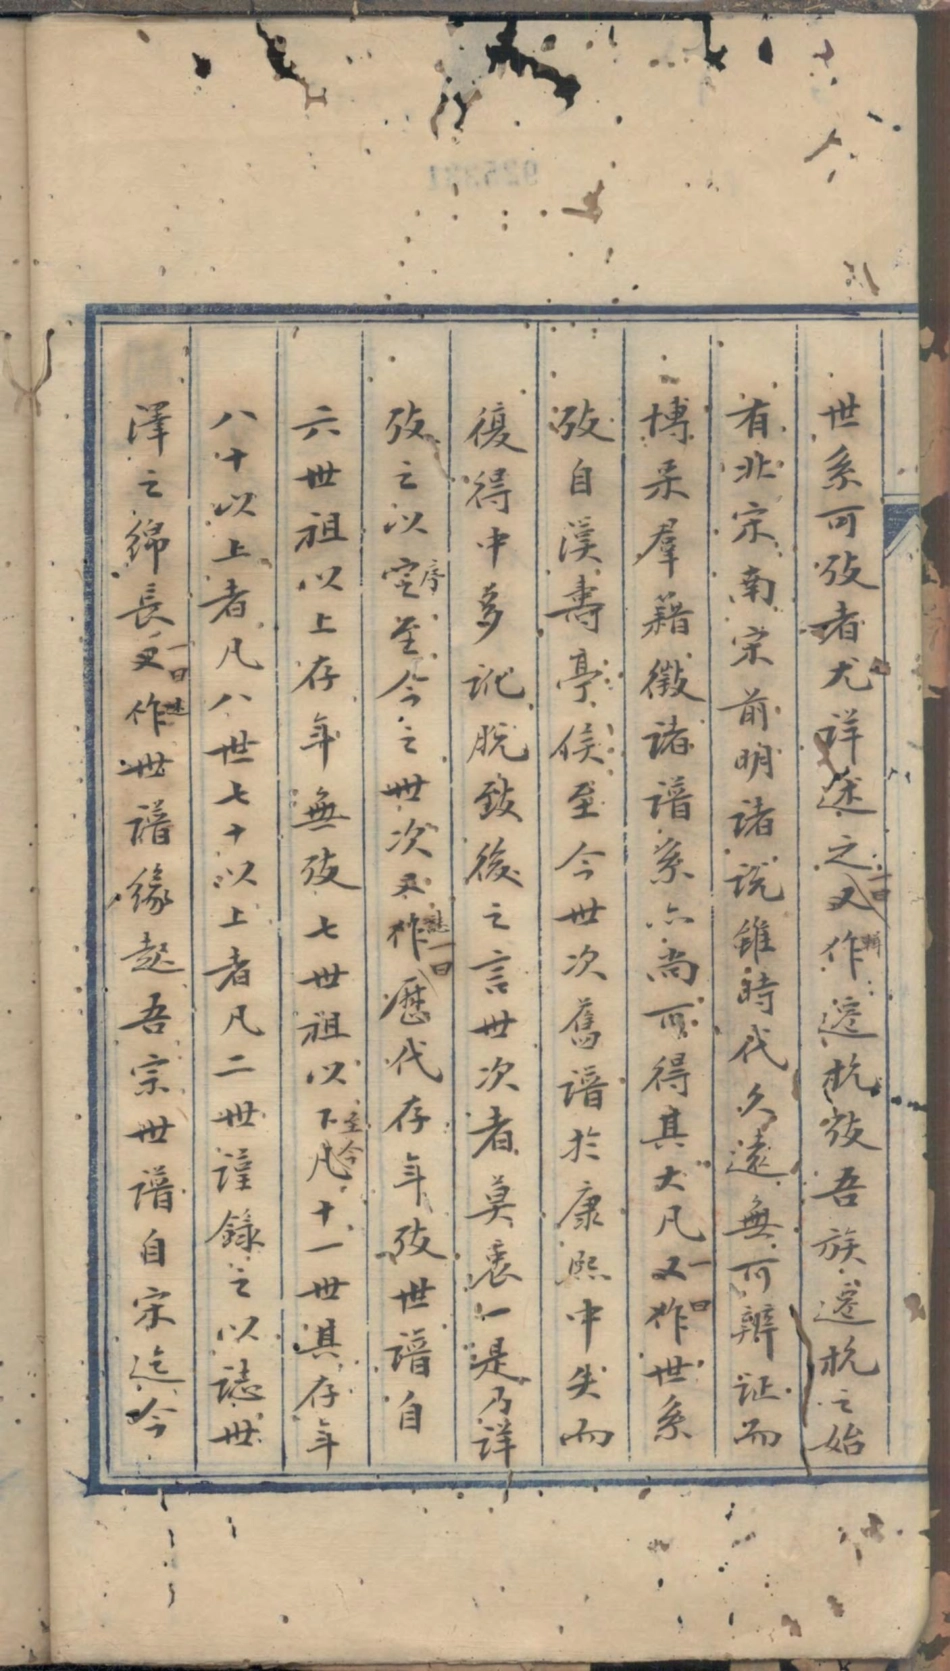 世系可攷者尤詳述之又一曰作輯遷杭攷吾族遷杭之始
有北宋南宋前明諸說雖時代久遠無可辨証而
博采羣籍徵諸譜系亦尚可得其大凡又一曰作世系
攷自漢壽亭侯至今世次舊譜於康熙中失而
復得中多訛脫致後之言世次者莫衷一是乃詳
攷之以定序至今之世次又作述一曰歷代存年攷世譜自
六世祖以上存年無攷七世祖以下至今凡十一世其存年
八十以上者凡八世七十以上者凡二世謹錄之以誌世
澤之綿長又一曰作述世譜緣起吾宗世譜自宋迄今